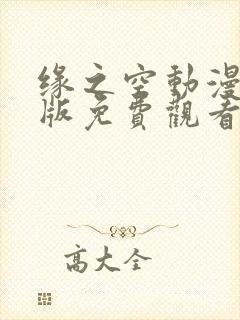 缘之空動漫
版免費觀看
高大全